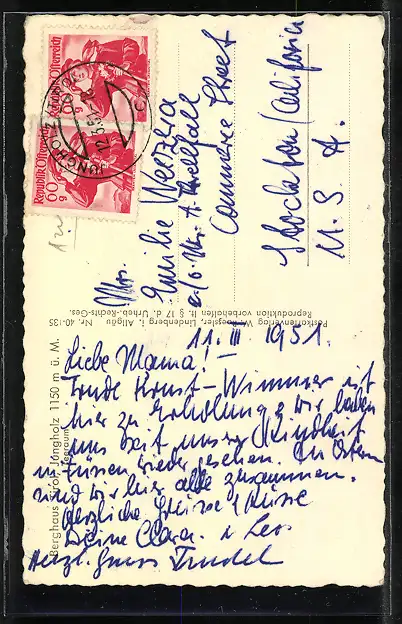 Republik Österreich
60 g
Republik Österreich
60 g
JUNGHOLZ
Mrs.
Emilie
c/o Mr. A.
Commerce Street
Stockton/California
U.S.A.
Postkartenverlag W. Roessler, Lindenberg i. Allgäu Nr. 40/35
Reproduktion vorbehalten lt. § 17 d. Urheb.-Rechts-Ges.
Berghaus Tirol, Jungholz 1150 m ü. M.
11. III 1951.
Liebe Mama!
Trude Ernst-Wimmer ist
hier zu Erholung & wir haben
uns seit unsrer Kindheit
wieder gesehen. Zu Ostern
sind wir hier alle zusammen.
Herzliche Grüsse & Küsse
Deine Clara. & Leo
Herzl. Gruss Trudel